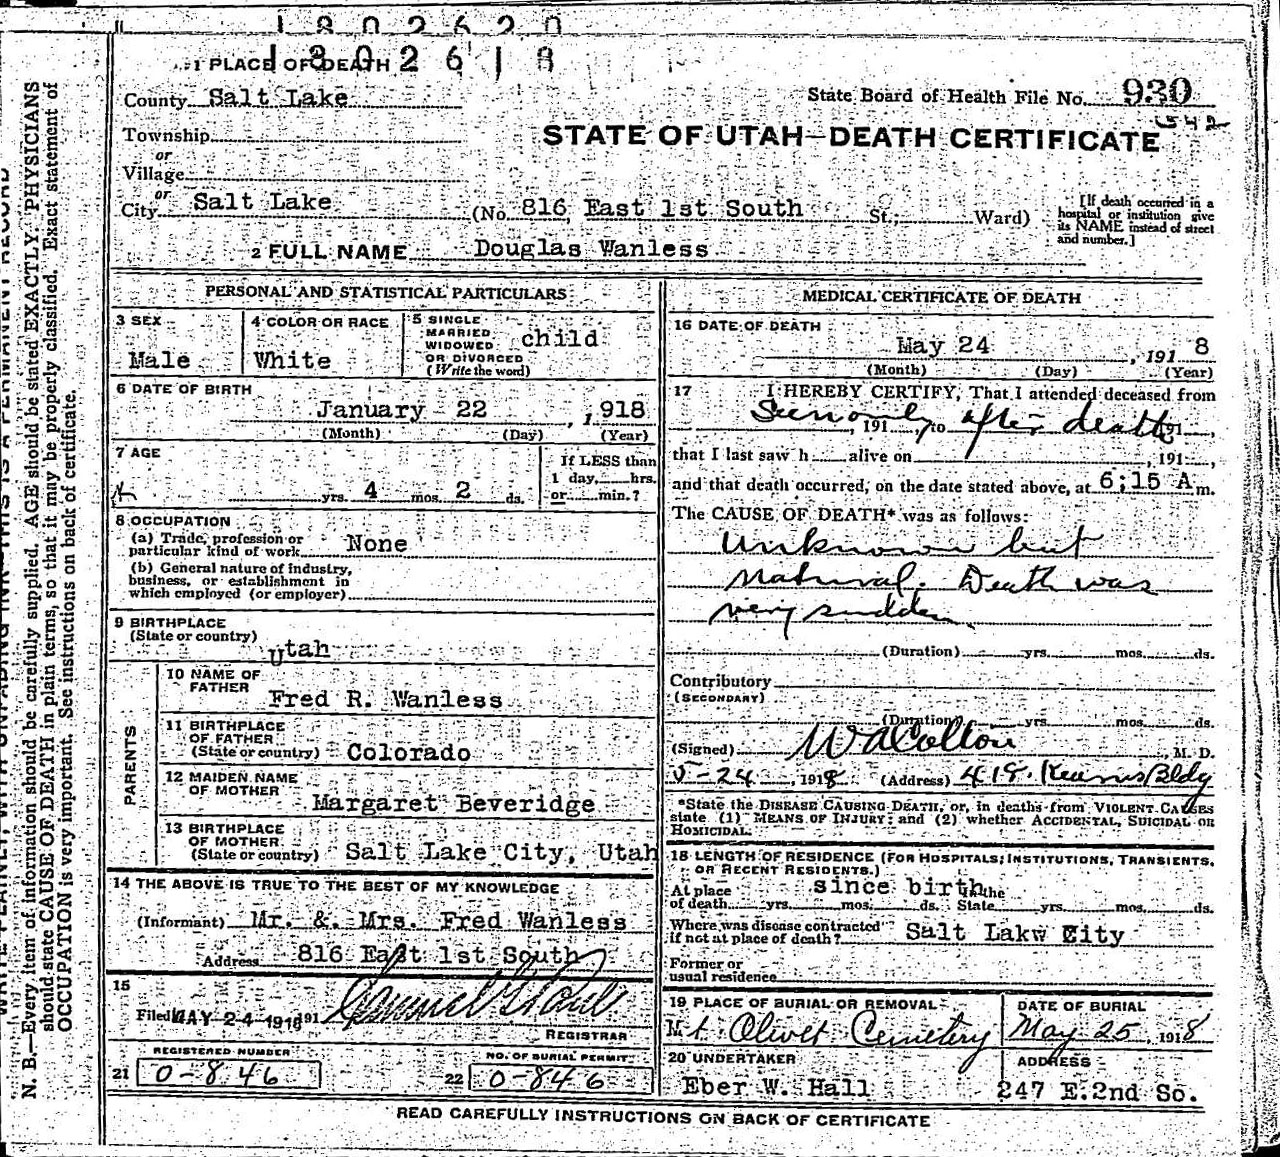 1802620
1802618
1 PLACE OF DEATH
County Salt Lake
State Board of Health File No. 930
342
Township
or
Village
or
City Salt Lake
STATE OF UTAH—DEATH CERTIFICATE
(No. 816 East 1st South St.; Ward)
[If death occurred in a
hospital or institution give
its NAME instead of street
and number.]
2 FULL NAME Douglas Wanless
PERSONAL AND STATISTICAL PARTICULARS
3 SEX
Male
4 COLOR OR RACE
White
5 SINGLE
MARRIED
WIDOWED
OR DIVORCED
(Write the word)
child
6 DATE OF BIRTH
January 22, 1918
(Month) (Day) (Year)
7 AGE
yrs. 4 mos. 2 ds.
If LESS than
1 day, hrs.
or min.?
8 OCCUPATION
(a) Trade, profession or
particular kind of work None
(b) General nature of industry,
business, or establishment in
which employed (or employer)
9 BIRTHPLACE
(State or country) Utah
PARENTS
10 NAME OF
FATHER Fred R. Wanless
11 BIRTHPLACE
OF FATHER
(State or country) Colorado
12 MAIDEN NAME
OF MOTHER Margaret Beveridge
13 BIRTHPLACE
OF MOTHER
(State or country) Salt Lake City, Utah
14 THE ABOVE IS TRUE TO THE BEST OF MY KNOWLEDGE
(Informant) Mr. & Mrs. Fred Wanless
Address 816 East 1st South
15
Filed MAY 24 1918 191
REGISTRAR
REGISTERED NUMBER
21 0-846
NO. OF BURIAL PERMIT
22 0-846
MEDICAL CERTIFICATE OF DEATH
16 DATE OF DEATH
May 24, 1918
(Month) (Day) (Year)
17 I HEREBY CERTIFY, That I attended deceased from
Seen only, 191, to after death, 191,
that I last saw h alive on, 191,
and that death occurred, on the date stated above, at 6;15 A m.
The CAUSE OF DEATH* was as follows:
Unknown but
natural. Death was
very sudden
(Duration) yrs. mos. ds.
Contributory
(SECONDARY)
(Duration) yrs. mos. ds.
(Signed) W A Colton M. D.
5-24, 1918 (Address) 418 Kearns Bldg
*State the DISEASE CAUSING DEATH, or, in deaths from VIOLENT CAUSES
state (1) MEANS OF INJURY; and (2) whether ACCIDENTAL, SUICIDAL OR
HOMICIDAL.
18 LENGTH OF RESIDENCE (FOR HOSPITALS, INSTITUTIONS, TRANSIENTS,
OR RECENT RESIDENTS.)
At place since birth In the
of death yrs. mos. ds. State yrs. mos. ds.
Where was disease contracted
if not at place of death? Salt Lakw City
Former or
usual residence
19 PLACE OF BURIAL OR REMOVAL
Mt. Olivet Cemetery
DATE OF BURIAL
May 25, 1918
20 UNDERTAKER
Eber W. Hall
ADDRESS
247 E.2nd So.
READ CAREFULLY INSTRUCTIONS ON BACK OF CERTIFICATE
N. B.—Every item of information should be carefully supplied. AGE should be stated EXACTLY. PHYSICIANS
should state CAUSE OF DEATH in plain terms, so that it may be properly classified. Exact statement of
OCCUPATION is very important. See instructions on back of certificate.